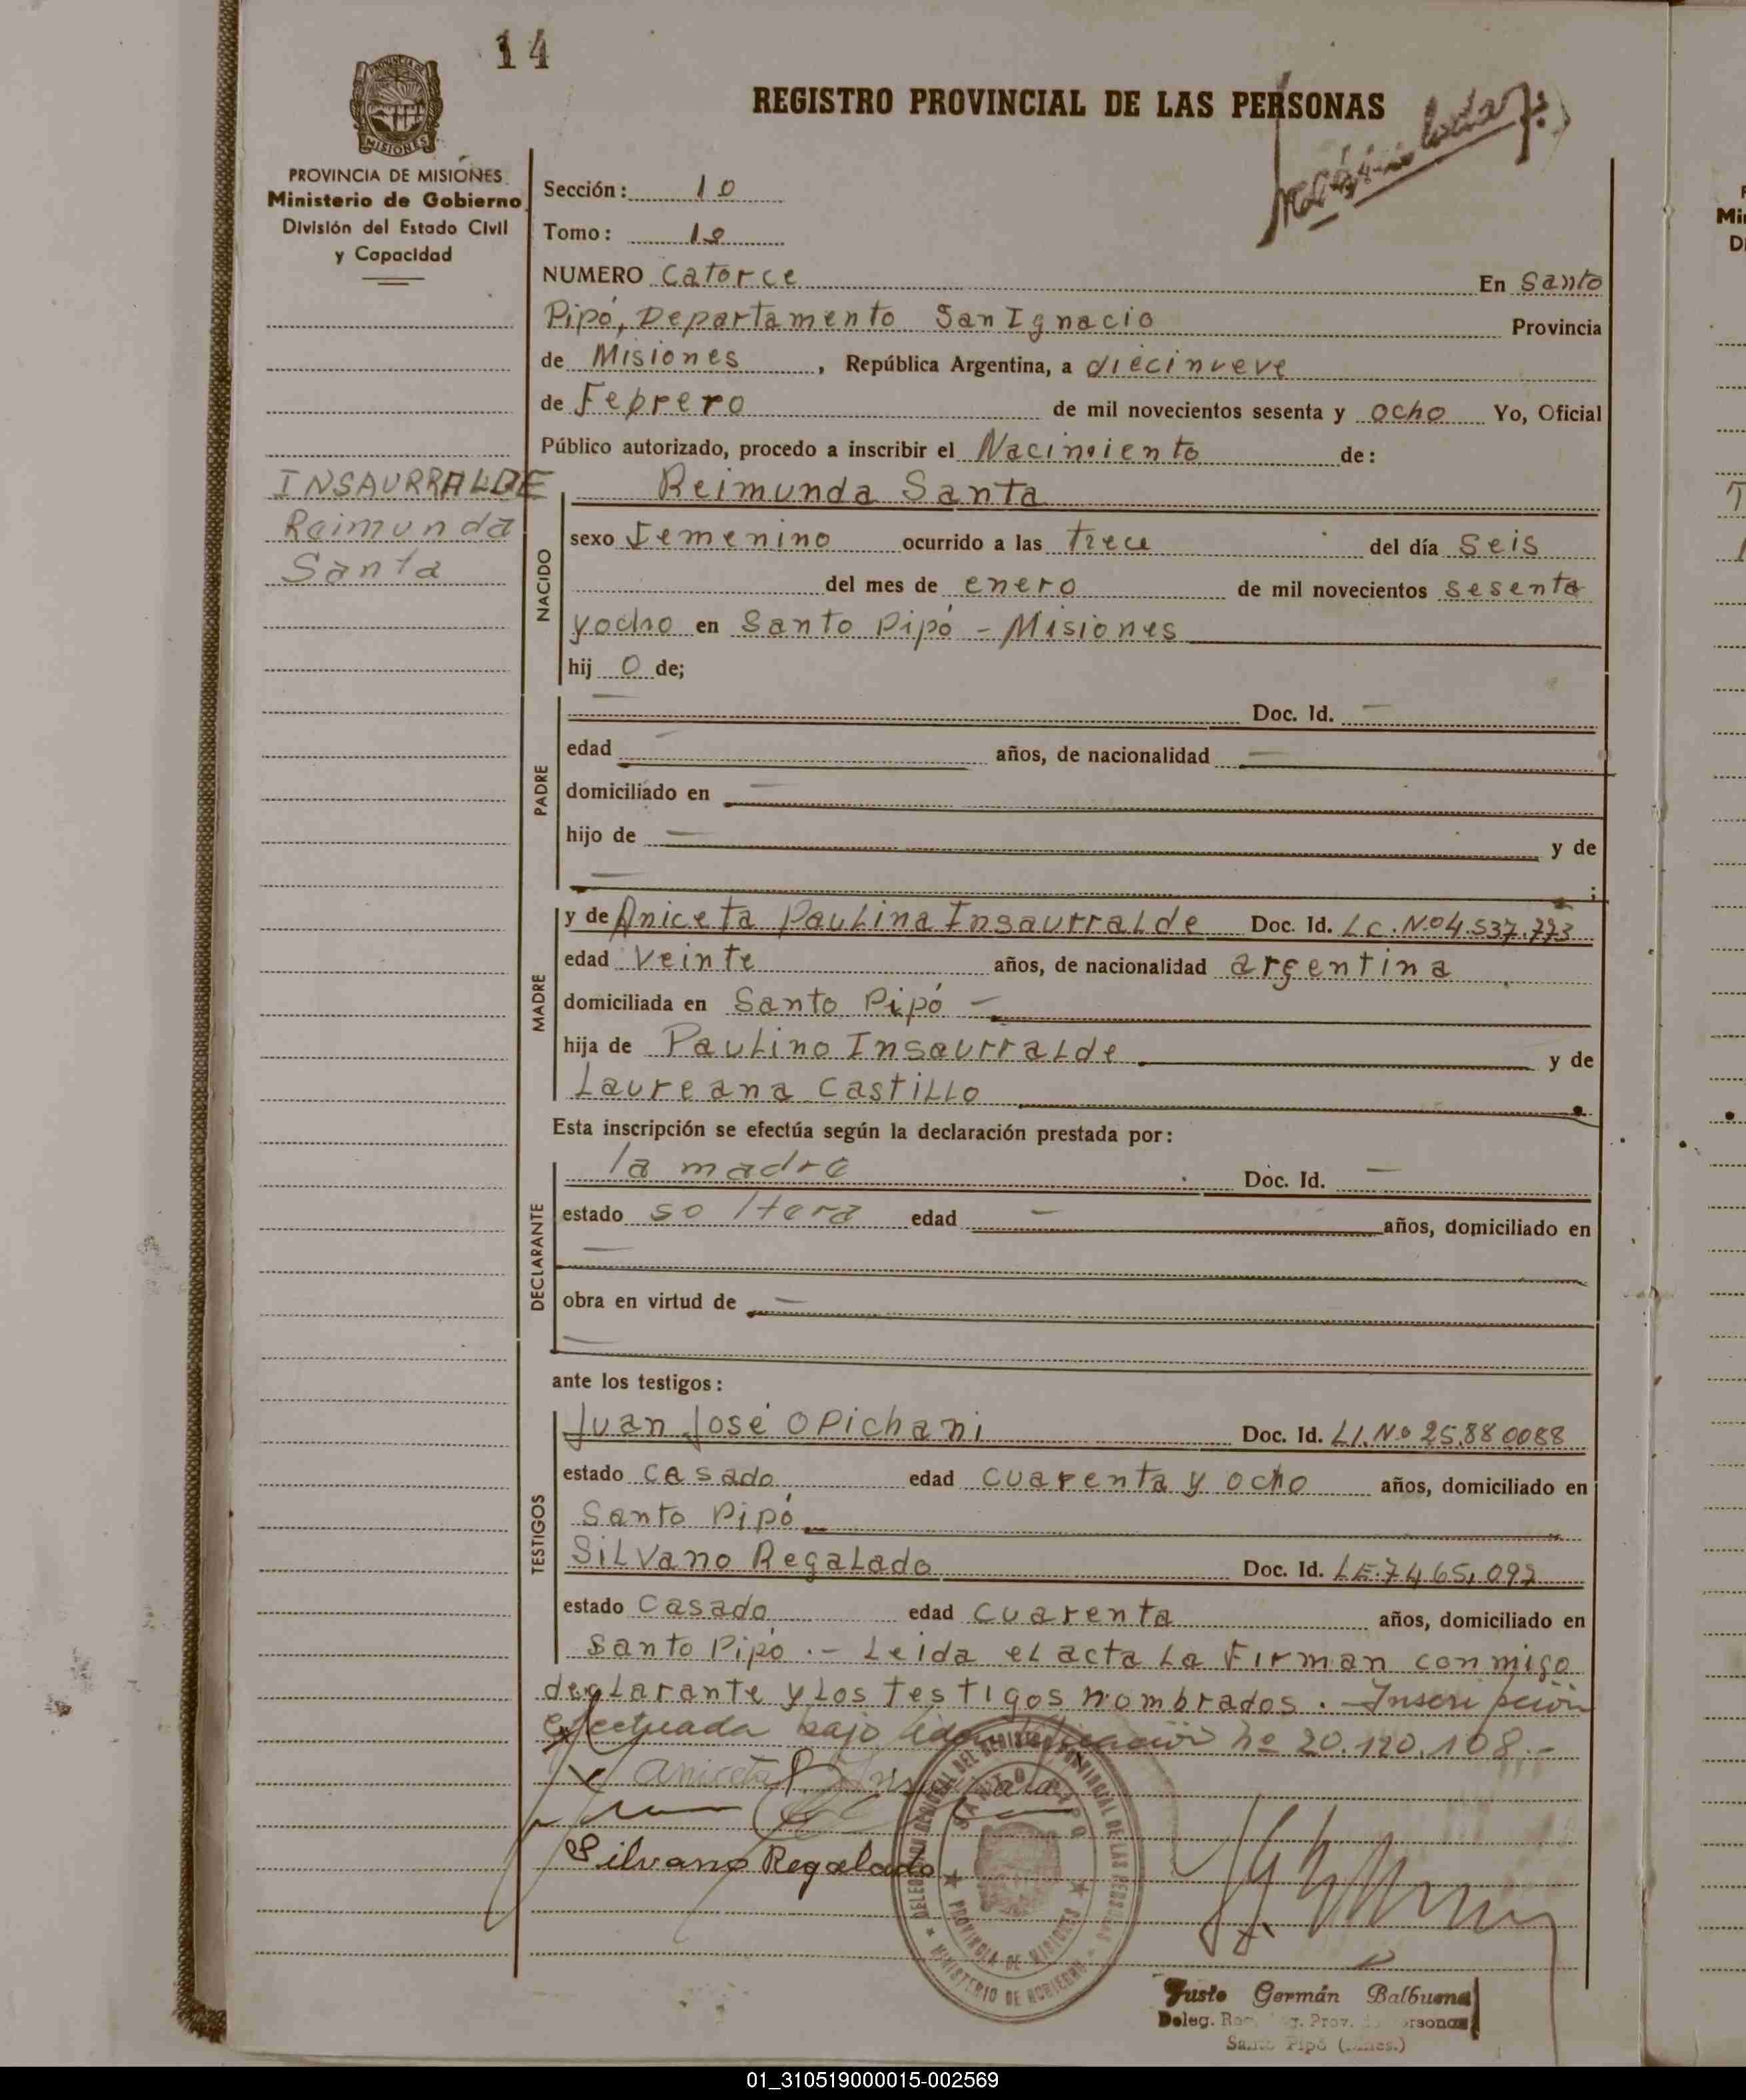 14
REGISTRO PROVINCIAL DE LAS PERSONAS
PROVINCIA DE MISIONES
Ministerio de Gobierno
División del Estado Civil
y Capacidad
Sección: 10
Tomo: 1º
NUMERO Catorce En Santo
Pipó, Departamento San Ignacio Provincia
de Misiones, República Argentina, a diecinueve
de Febrero de mil novecientos sesenta y ocho Yo, Oficial
Público autorizado, procedo a inscribir el Nacimiento de:
INSAURRALDE
Raimunda
Santa
NACIDO
Reimunda Santa
sexo Femenino ocurrido a las trece del día Seis
del mes de enero de mil novecientos sesenta
y ocho en Santo Pipó - Misiones
hij o de;
PADRE
— Doc. Id. —
edad — años, de nacionalidad —
domiciliado en —
hijo de — y de
— ;
MADRE
y de Aniceta Paulina Insaurralde Doc. Id. LC. Nº 4.537.773
edad Veinte años, de nacionalidad argentina
domiciliada en Santo Pipó —
hija de Paulino Insaurralde y de
Laureana Castillo
Esta inscripción se efectúa según la declaración prestada por:
DECLARANTE
la madre Doc. Id. —
estado soltera edad — años, domiciliado en
—
obra en virtud de —
—
ante los testigos:
TESTIGOS
Juan José Opichani Doc. Id. L.I. Nº 25.880088
estado Casado edad Cuarenta y ocho años, domiciliado en
Santo Pipó
Silvano Regalado Doc. Id. LE. 7465.092
estado Casado edad Cuarenta años, domiciliado en
Santo Pipó .- Leida el acta La Firman conmigo
declarante y Los testigos nombrados. - Inscripción
efectuada bajo identificación nº 20.120.108.-
Aniceta P. Insaurralde
Silvano Regalado
DELEGACION REGIONAL DEL REGISTRO PROVINCIAL DE LAS PERSONAS
SANTO PIPO
PROVINCIA DE MISIONES
MINISTERIO DE GOBIERNO
Justo Germán Balbuena
Deleg. Prov. Personas
Santo Pipó (Mnes.)
01_310519000015-002569